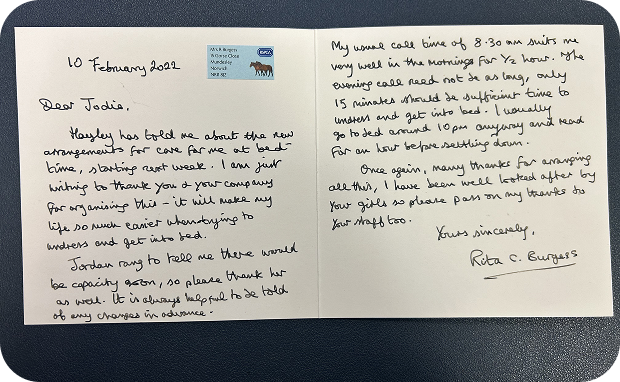 10 February 2022
Mrs R Burgess
Mundesley
Norwich
RSPCA
Dear Jodie,
Hayley has told me about the new
arrangements for care for me at bed-
time, starting next week. I am just
writing to thank you & your company
for organising this – it will make my
life so much easier when trying to
undress and get into bed.
Jordan rang to tell me there would
be capacity soon, so please thank her
as well. It is always helpful to be told
of any changes in advance.
My usual call time of 8.30 am suits me
very well in the mornings for ½ hour. The
evening call need not be as long, only
15 minutes should be sufficient time to
undress and get into bed. I usually
go to bed around 10pm anyway and read
for an hour before settling down.
Once again, many thanks for arranging
all this, I have been well looked after by
your girls so please pass on my thanks to
your staff too.
Yours sincerely,
Rita C. Burgess